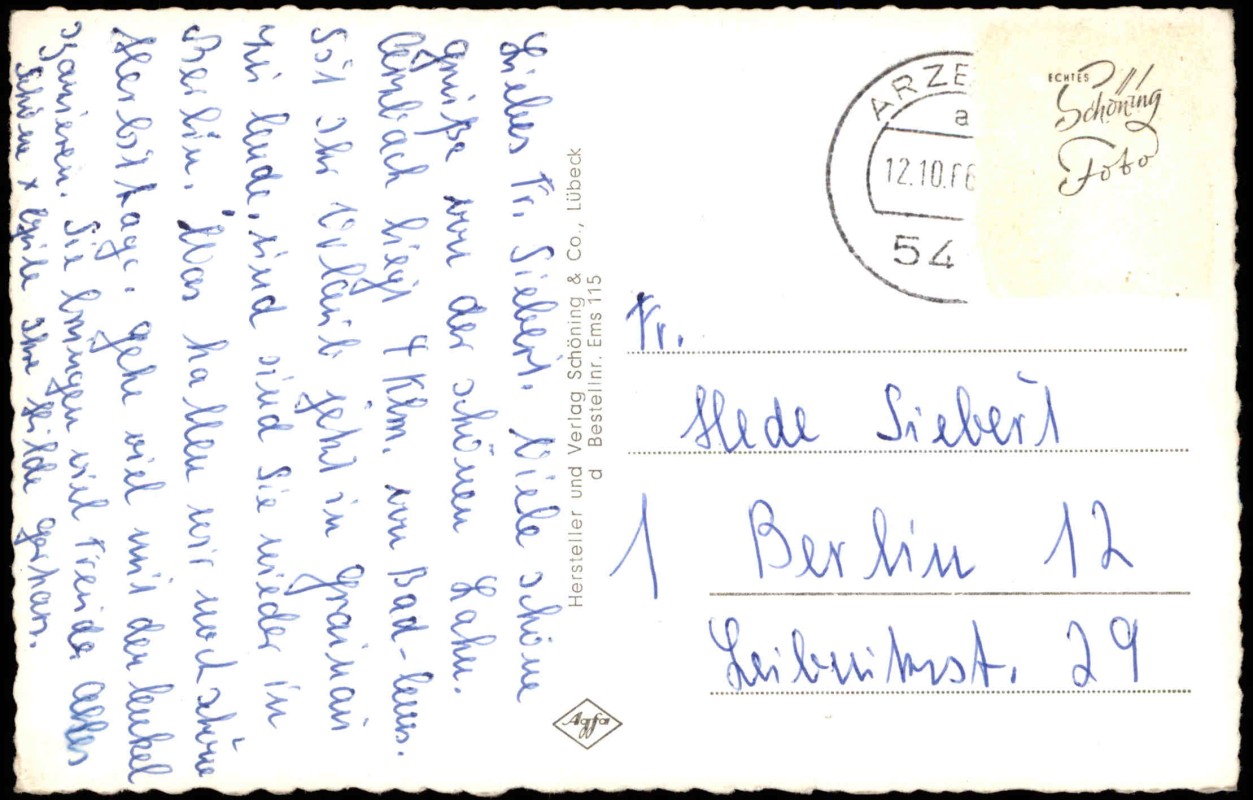 Liebes Fr. Siebert. Viele schöne
Grüße von der schönen Lahn.
liegt 4 Klm. von Bad-Ems.
Urlaub jetzt in Grainau
sind Sie wieder in
Berlin. Was hatten wir noch schöne
Herbsttage. gehe viel mit den Enkel
Spazieren. Sie bringen viel Freude. Alles
Ihre Hilde
Hersteller und Verlag Schöning & Co., Lübeck
d Bestellnr. Ems 115
Agfa
ARZE
a
12.10.66
54
ECHTES
Schöning
Foto
Fr.
Hede Siebert
1 Berlin 12
Leibnitzst. 29